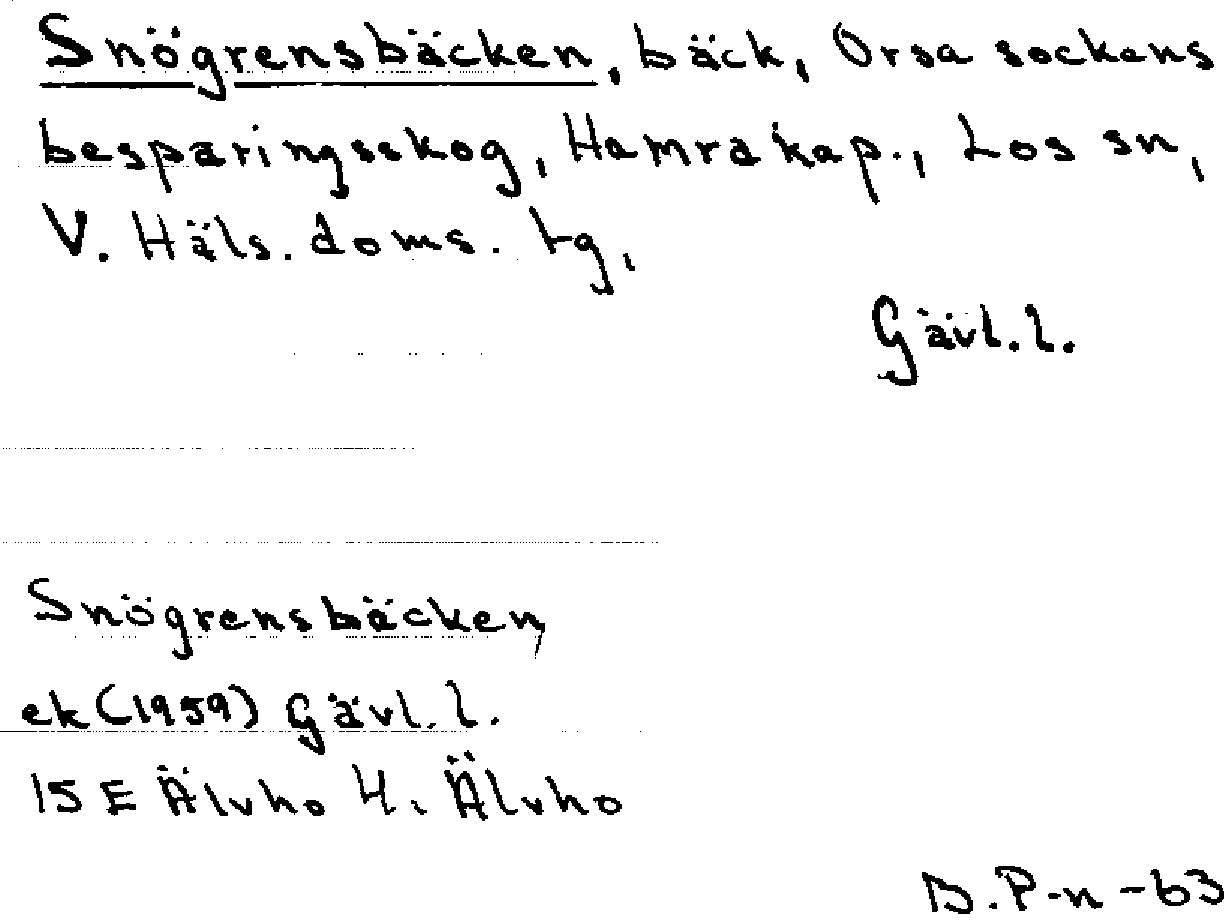 Snögrensbäcken, bäck, Orsa sockens
besparingsskog, Hamra kap., Los sn,
V. Häls. doms. tg,
Gävl. l.
Snögrensbäcken,
ek (1959) Gävl. l.
15 E Älvho 4. Älvho
B. P-n -63